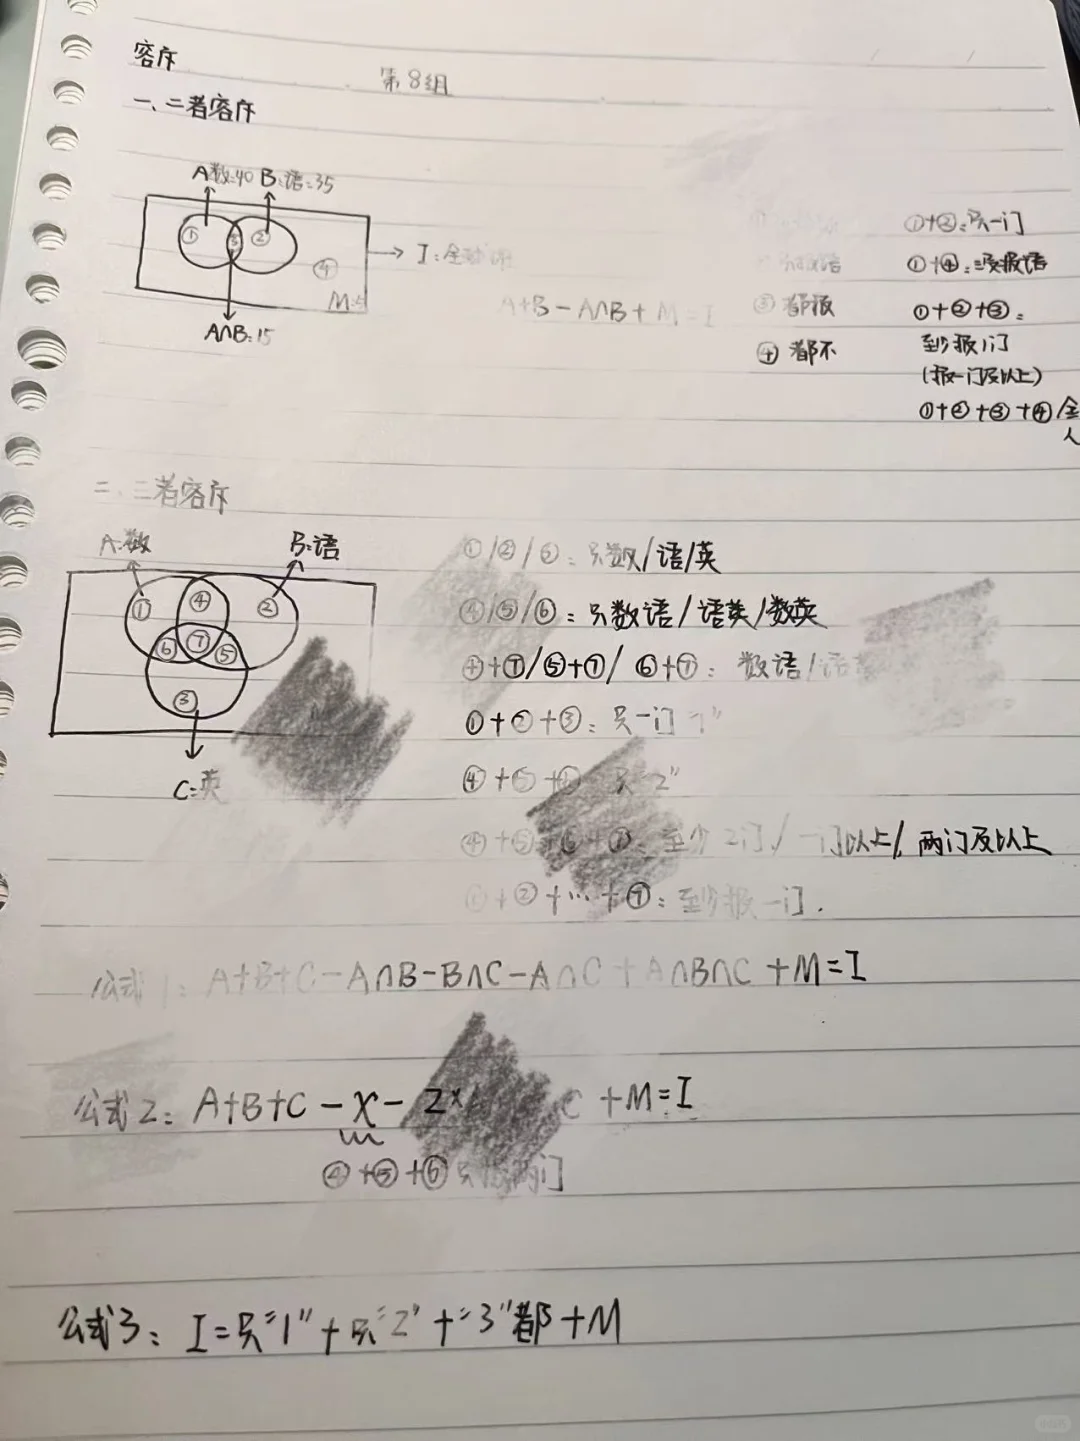 容斥
第8组
一、二者容斥
A数:40 B:语:35
① ③ ② ④
→ I:全
M:5
A∩B:15
A+B-A∩B+M=I
③都报
④都不
①+②:只一门
①+④:没报语
①+②+③:
至少报1门
(报一门及以上)
①+②+③+④全
人
二、三者容斥
A:数 B:语
① ④ ②
⑥ ⑦ ⑤
③
C:英
①/②/③:只数/语/英
④/⑤/⑥:只数语/语英/数英
④+⑦/⑤+⑦/⑥+⑦:数语/语
①+②+③:只一门"1"
④+⑤+⑥ 只"2"
④+⑤+⑥+⑦:至少2门/一门以上/两门及以上
①+②+…+⑦:至少报一门.
公式1:A+B+C-A∩B-B∩C-A∩C+A∩B∩C+M=I
公式2:A+B+C-X-2× C+M=I
④+⑤+⑥只 两门
公式3:I=只"1"+只"2"+"3"都+M